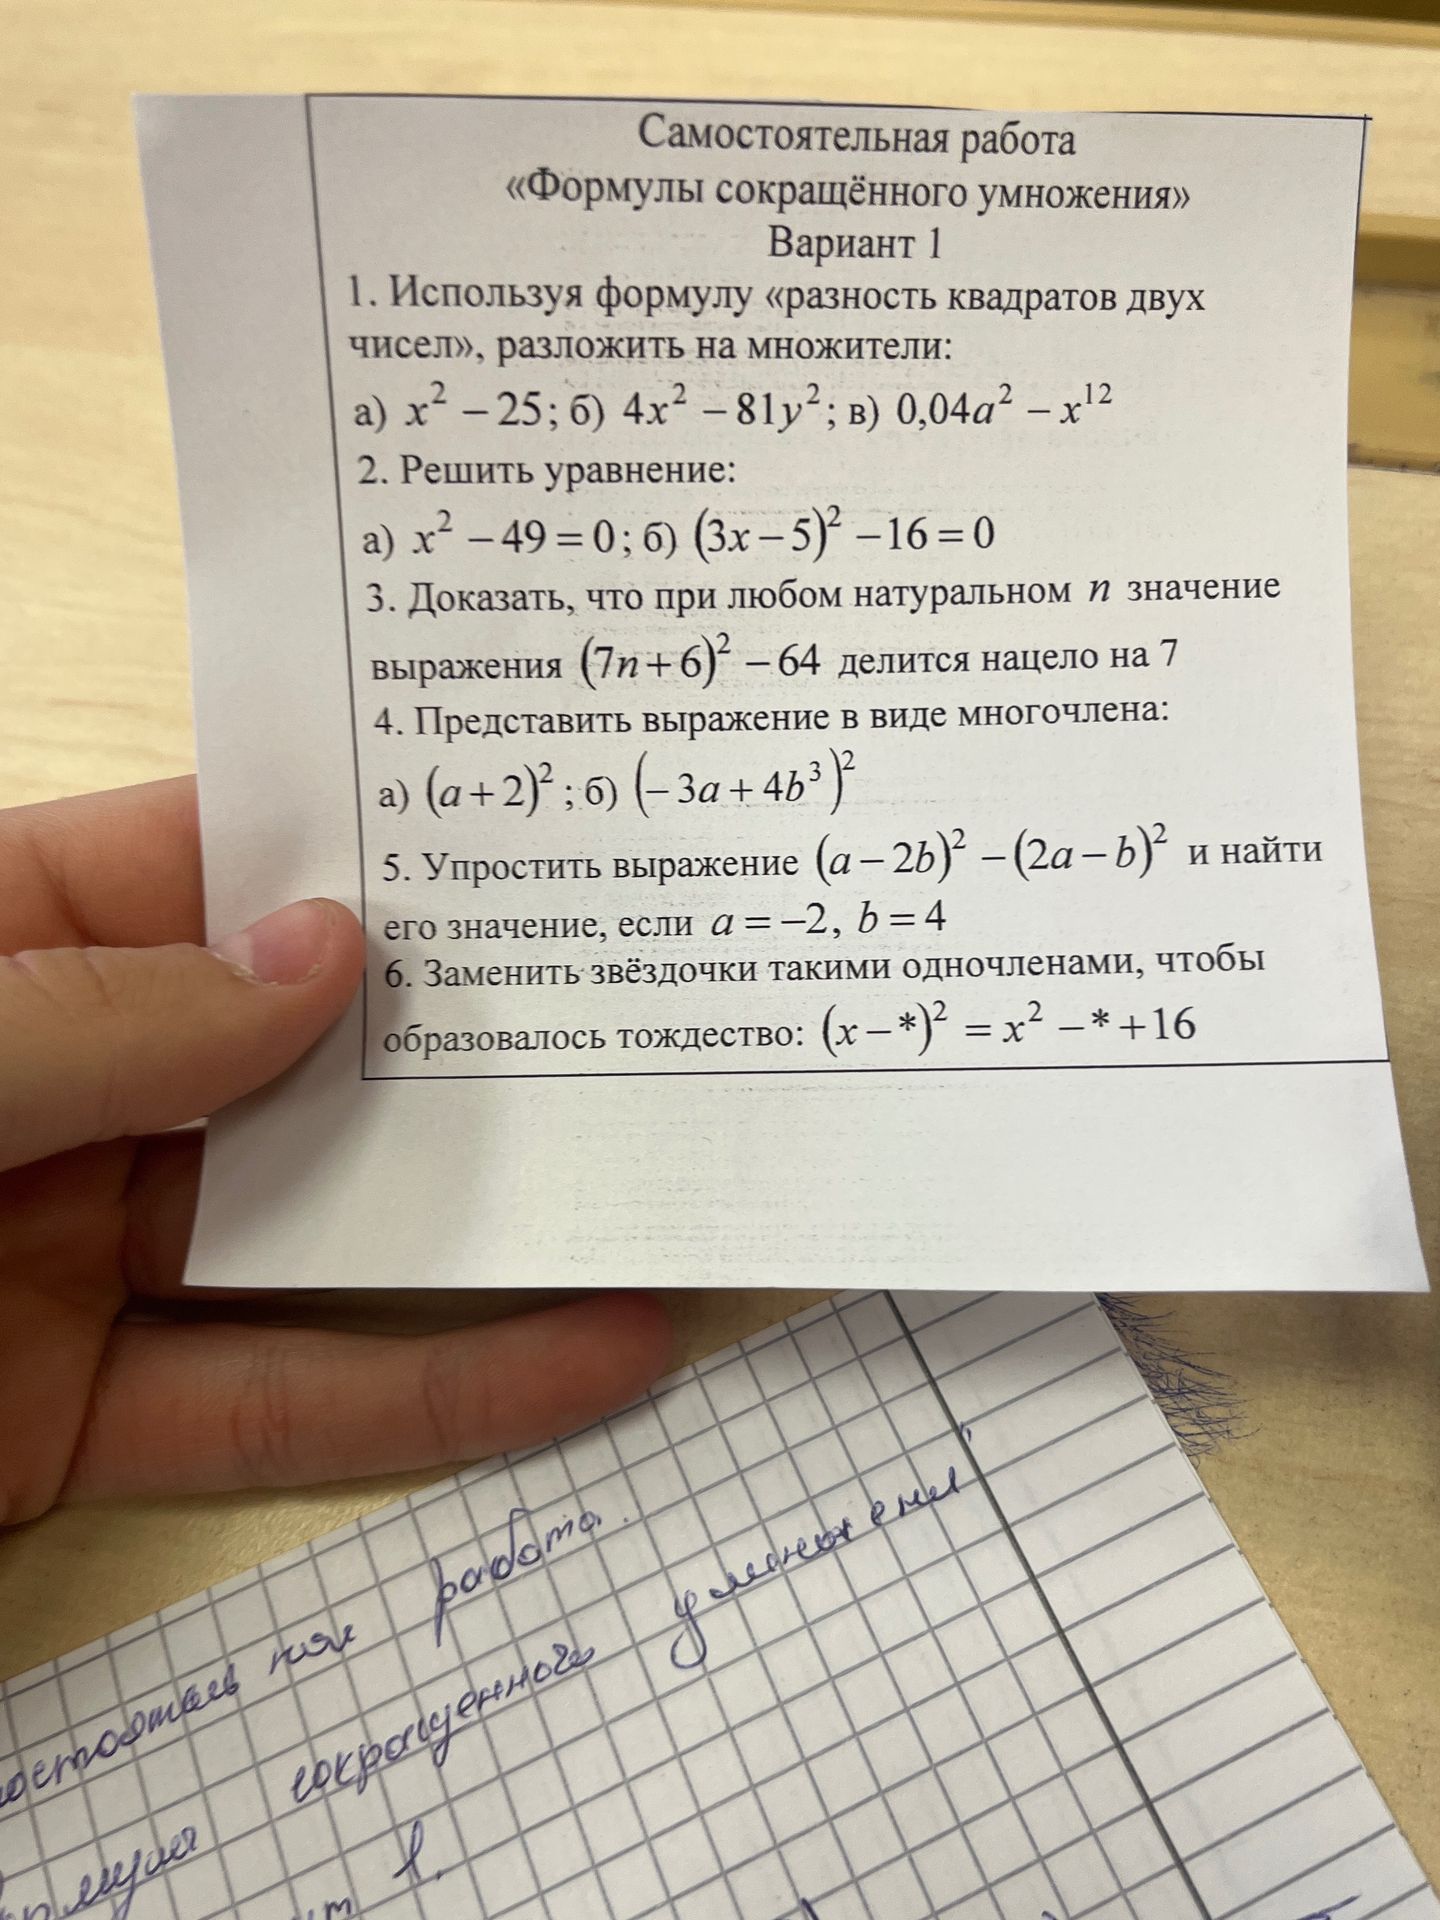 Самостоятельная работа
«Формулы сокращённого умножения»
Вариант 1
1. Используя формулу «разность квадратов двух
чисел», разложить на множители:
а) x² − 25; б) 4x² − 81y²; в) 0,04a² − x¹²
2. Решить уравнение:
а) x² − 49 = 0; б) (3x − 5)² − 16 = 0
3. Доказать, что при любом натуральном n значение
выражения (7n + 6)² − 64 делится нацело на 7
4. Представить выражение в виде многочлена:
а) (a + 2)²; б) (− 3a + 4b³)²
5. Упростить выражение (a − 2b)² − (2a − b)² и найти
его значение, если a = −2, b = 4
6. Заменить звёздочки такими одночленами, чтобы
образовалось тождество: (x − *)² = x² − * + 16
работа.
сокращенного умножени
1.